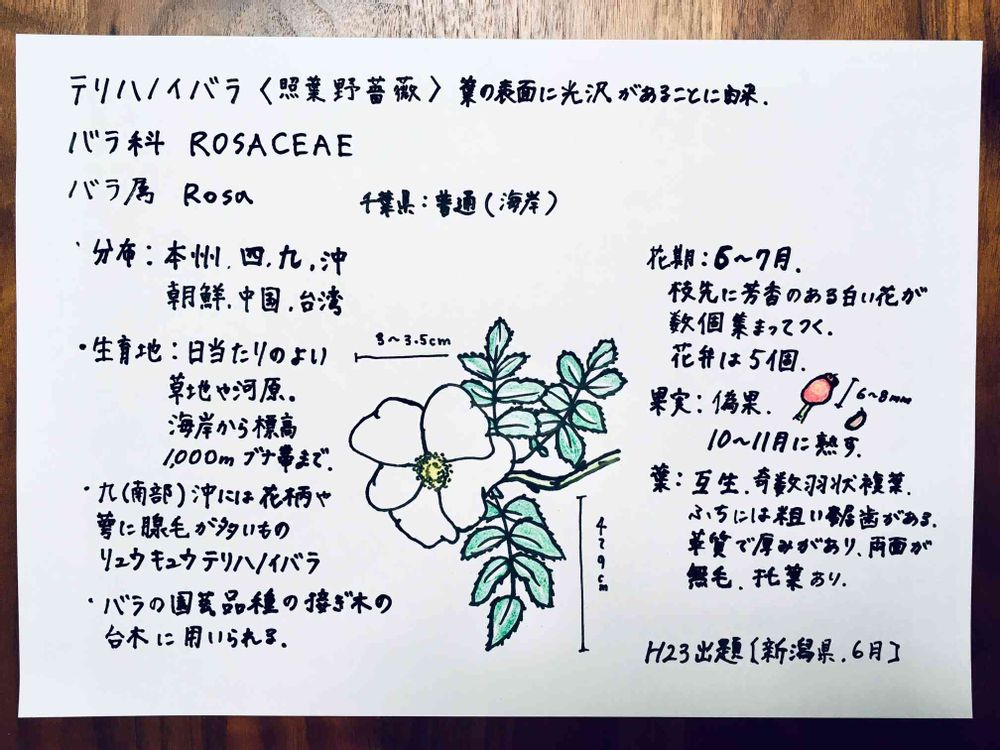 テリハノイバラ〈照葉野薔薇〉葉の表面に光沢があることに由来.
バラ科 ROSACEAE
バラ属 Rosa
千葉県:普通(海岸)
・分布:本州.四.九.沖
朝鮮.中国.台湾
・生育地:日当たりのよい
草地や河原。
海岸から標高
1,000mブナ帯まで.
・九(南部)沖には花柄や
萼に腺毛が多いもの
リュウキュウテリハノイバラ
・バラの園芸品種の接ぎ木の
台木に用いられる.
3〜3.5cm
4〜9cm
花期:6〜7月.
枝先に芳香のある白い花が
数個集まってつく.
花弁は5個.
果実:偽果.
6〜8mm
10〜11月に熟す.
葉:互生.奇数羽状複葉.
ふちには粗い鋸歯がある.
革質で厚みがあり、両面が
無毛.托葉あり.
H23出題[新潟県.6月]